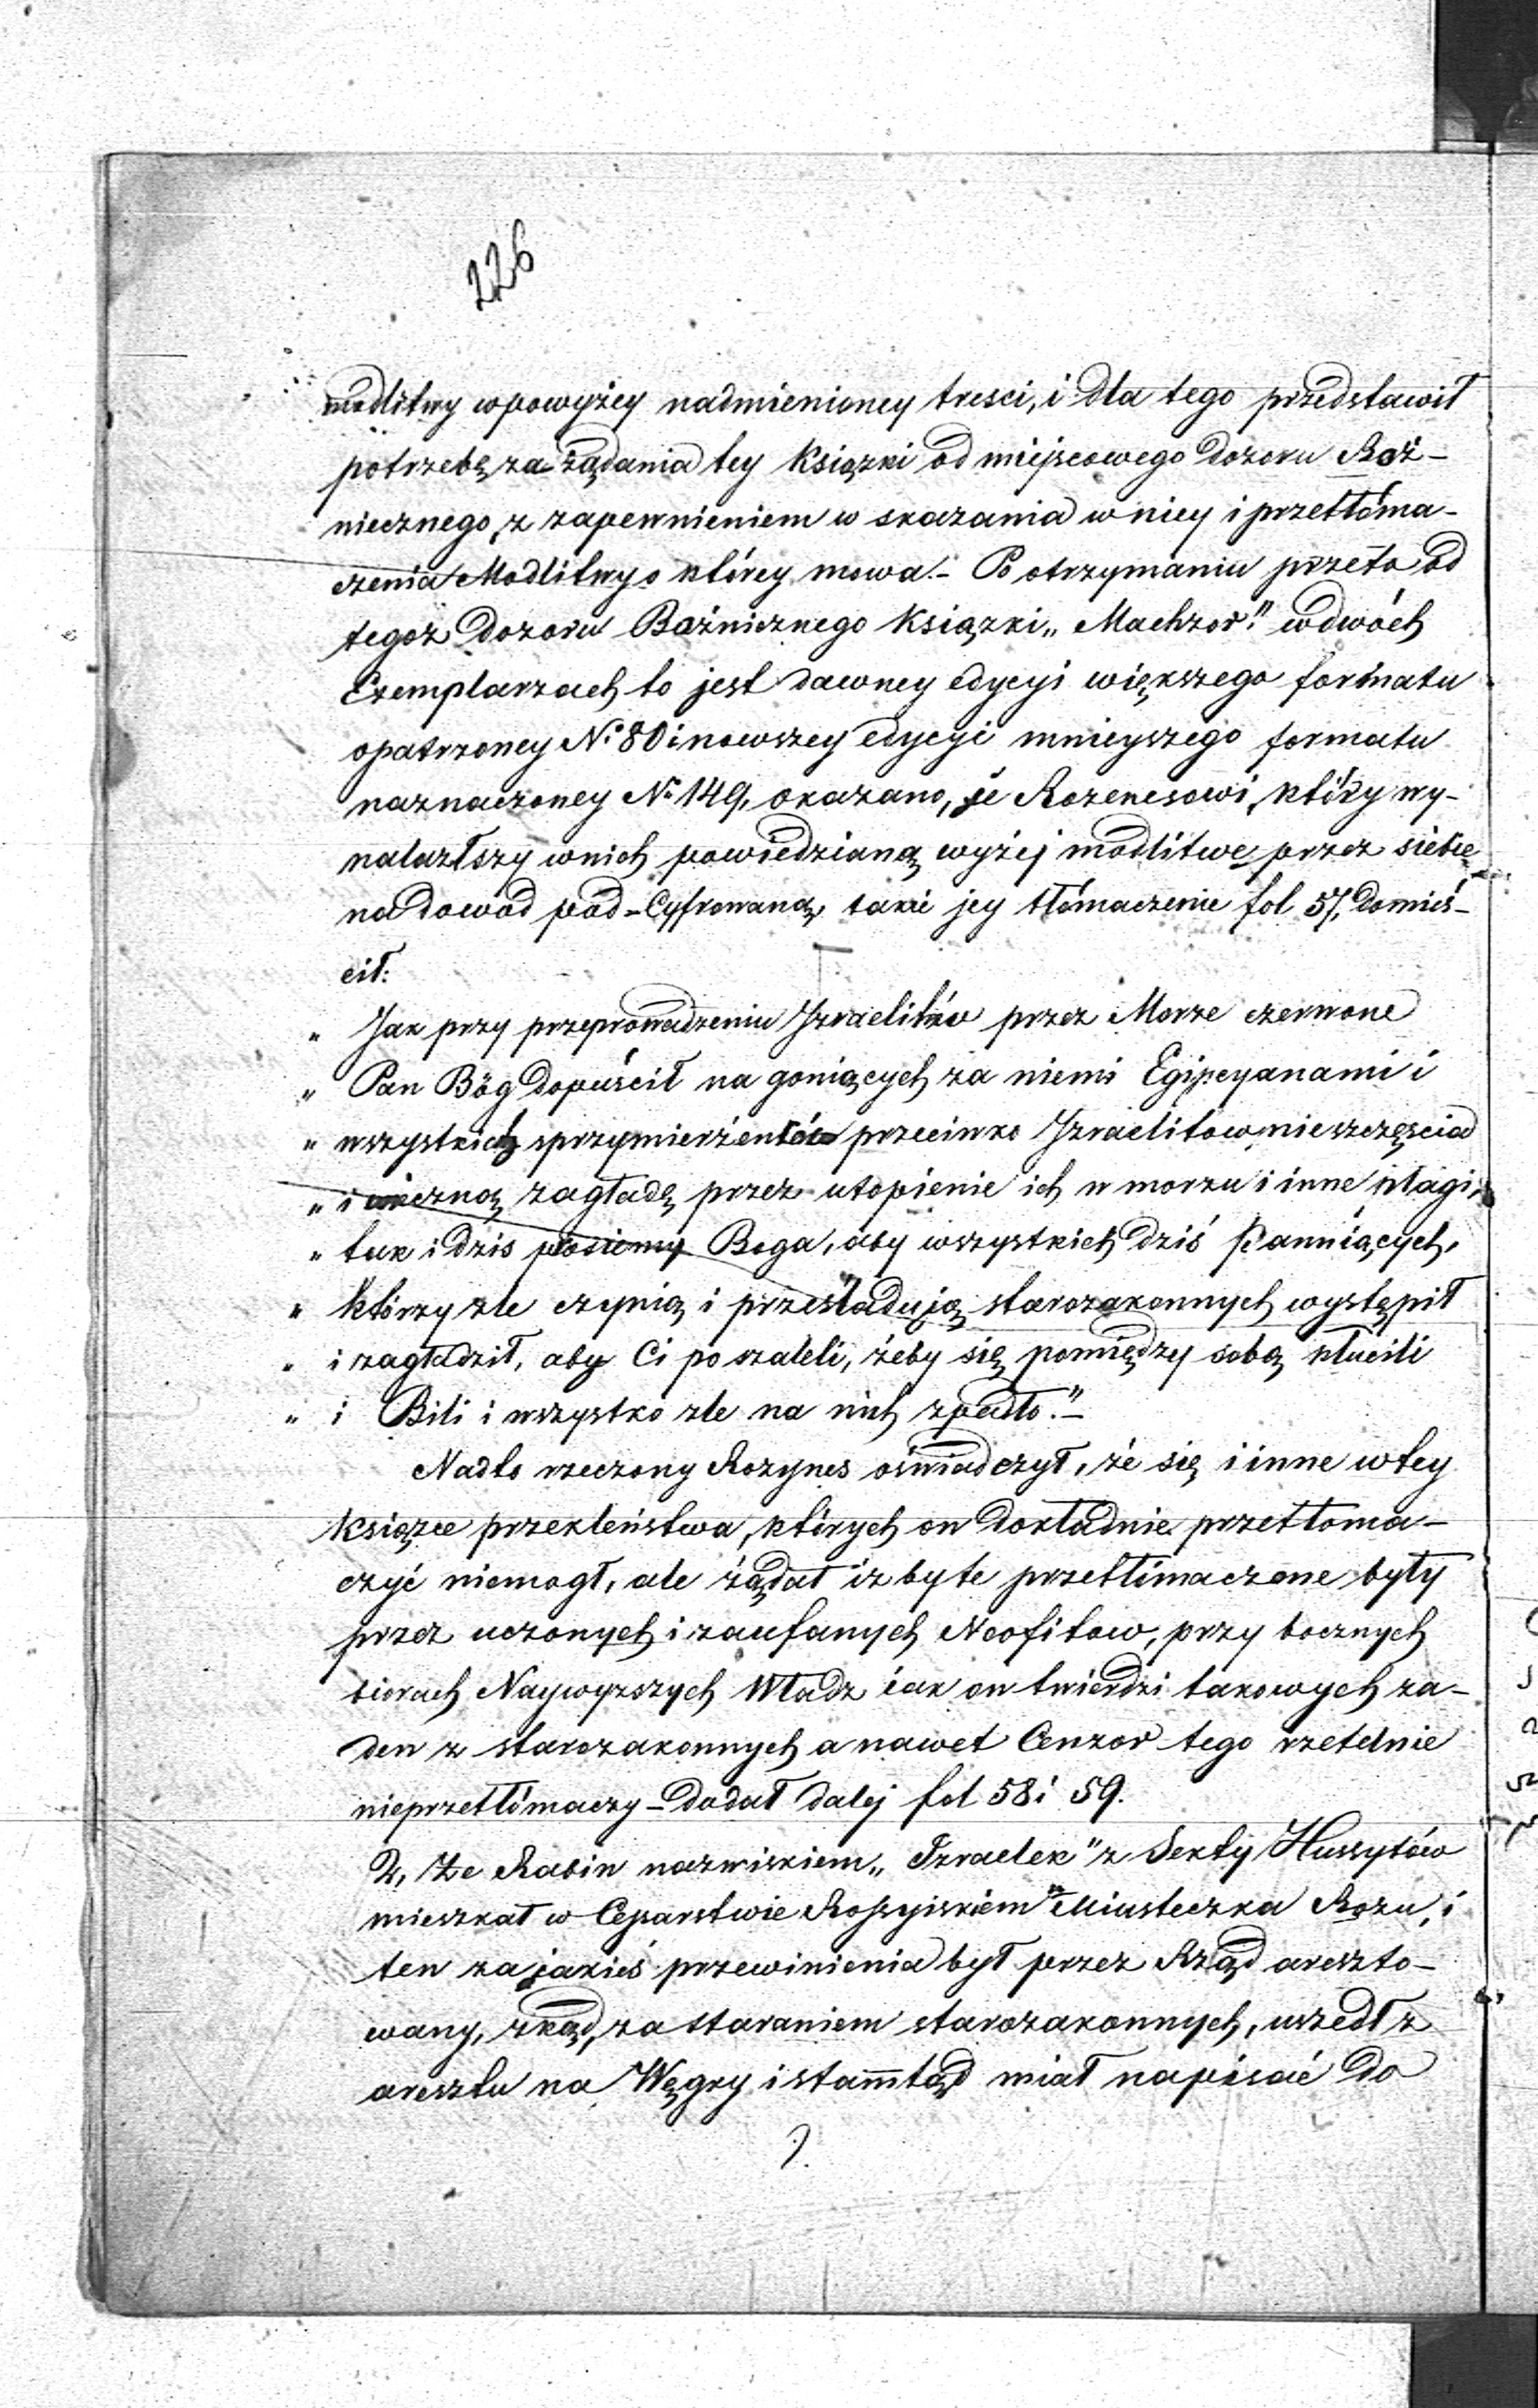 226
modlitwy w powyżey nadmienioney tresci, i dla tego przedstawił
potrzebę za-żądania tey Książki od miejscowego Dozoru Boź-
nicznego, z zapewnieniem w skazania w niey i przetłóma-
czenia Modlitwy o którey mowa.- Po otrzymaniu przeto od
tegoż Dozoru Bożnicznego Książki „Machzor" w dwóch
Exemplarzach to jest dawney edycyi większego formatu
opatrzoney No 80 i nowszey edycyi mnieyszego formatu
naznaczoney No 149, okazano, je Rozenesowi, który wy-
nalazłszy w nich powiedzianą wyżej modlitwę przez siebie
na dowod pod-Cyfrowaną, takie jey tłómaczenie fol 57, domieś-
cił:
„ Jak przy przeprowadzeniu Izraelitów przez Morze czerwone
„ Pan Bóg dopuścił na goniących za niemi Egipcyanami i
„ wszystkich sprzymierżeńców przeciwko Izraelitow nieszczęścia
„ i wieczną zagładę przez utopienie ich w morzu i inne plagi,
„ tak i dziś prosiemy Boga, aby wszystkich dziś Panuiących,
„ którzy zle czynią i prześladują starozakonnych występił
„ i zagładził, aby Ci poszaleli, żeby się pomiędzy sobą kłucili
„ i Bili i wszystko zle na nich spadło."-
Nadto rzeczony Rozynes oświadczył, że się i inne w tey
książce przekleństwa, których on dokładnie przetłoma-
czyć niemogł, ale żądał izby te przetłimaczone były
przez uczonych i zaufanych Neofitow, przy bocznych
biórach Naywyższych Władz iak on twierdzi takowych ża-
den z starozakonnych a nawet Cenzor tego rzetelnie
nieprzetłómaczy - dodał dalej fol 58 i 59.
2, Że Rabin nazwiskiem „Izraelek" z Sekty Hussytów
mieszkał w Cesarstwie Rossyiskiem Miasteczka Rożu, i
ten za jakieś przewinienia był przez Rząd areszto-
wany, zkąd, za staraniem starozakonnych, uszedł z
aresztu na Węgry i stamtąd miał napisać do